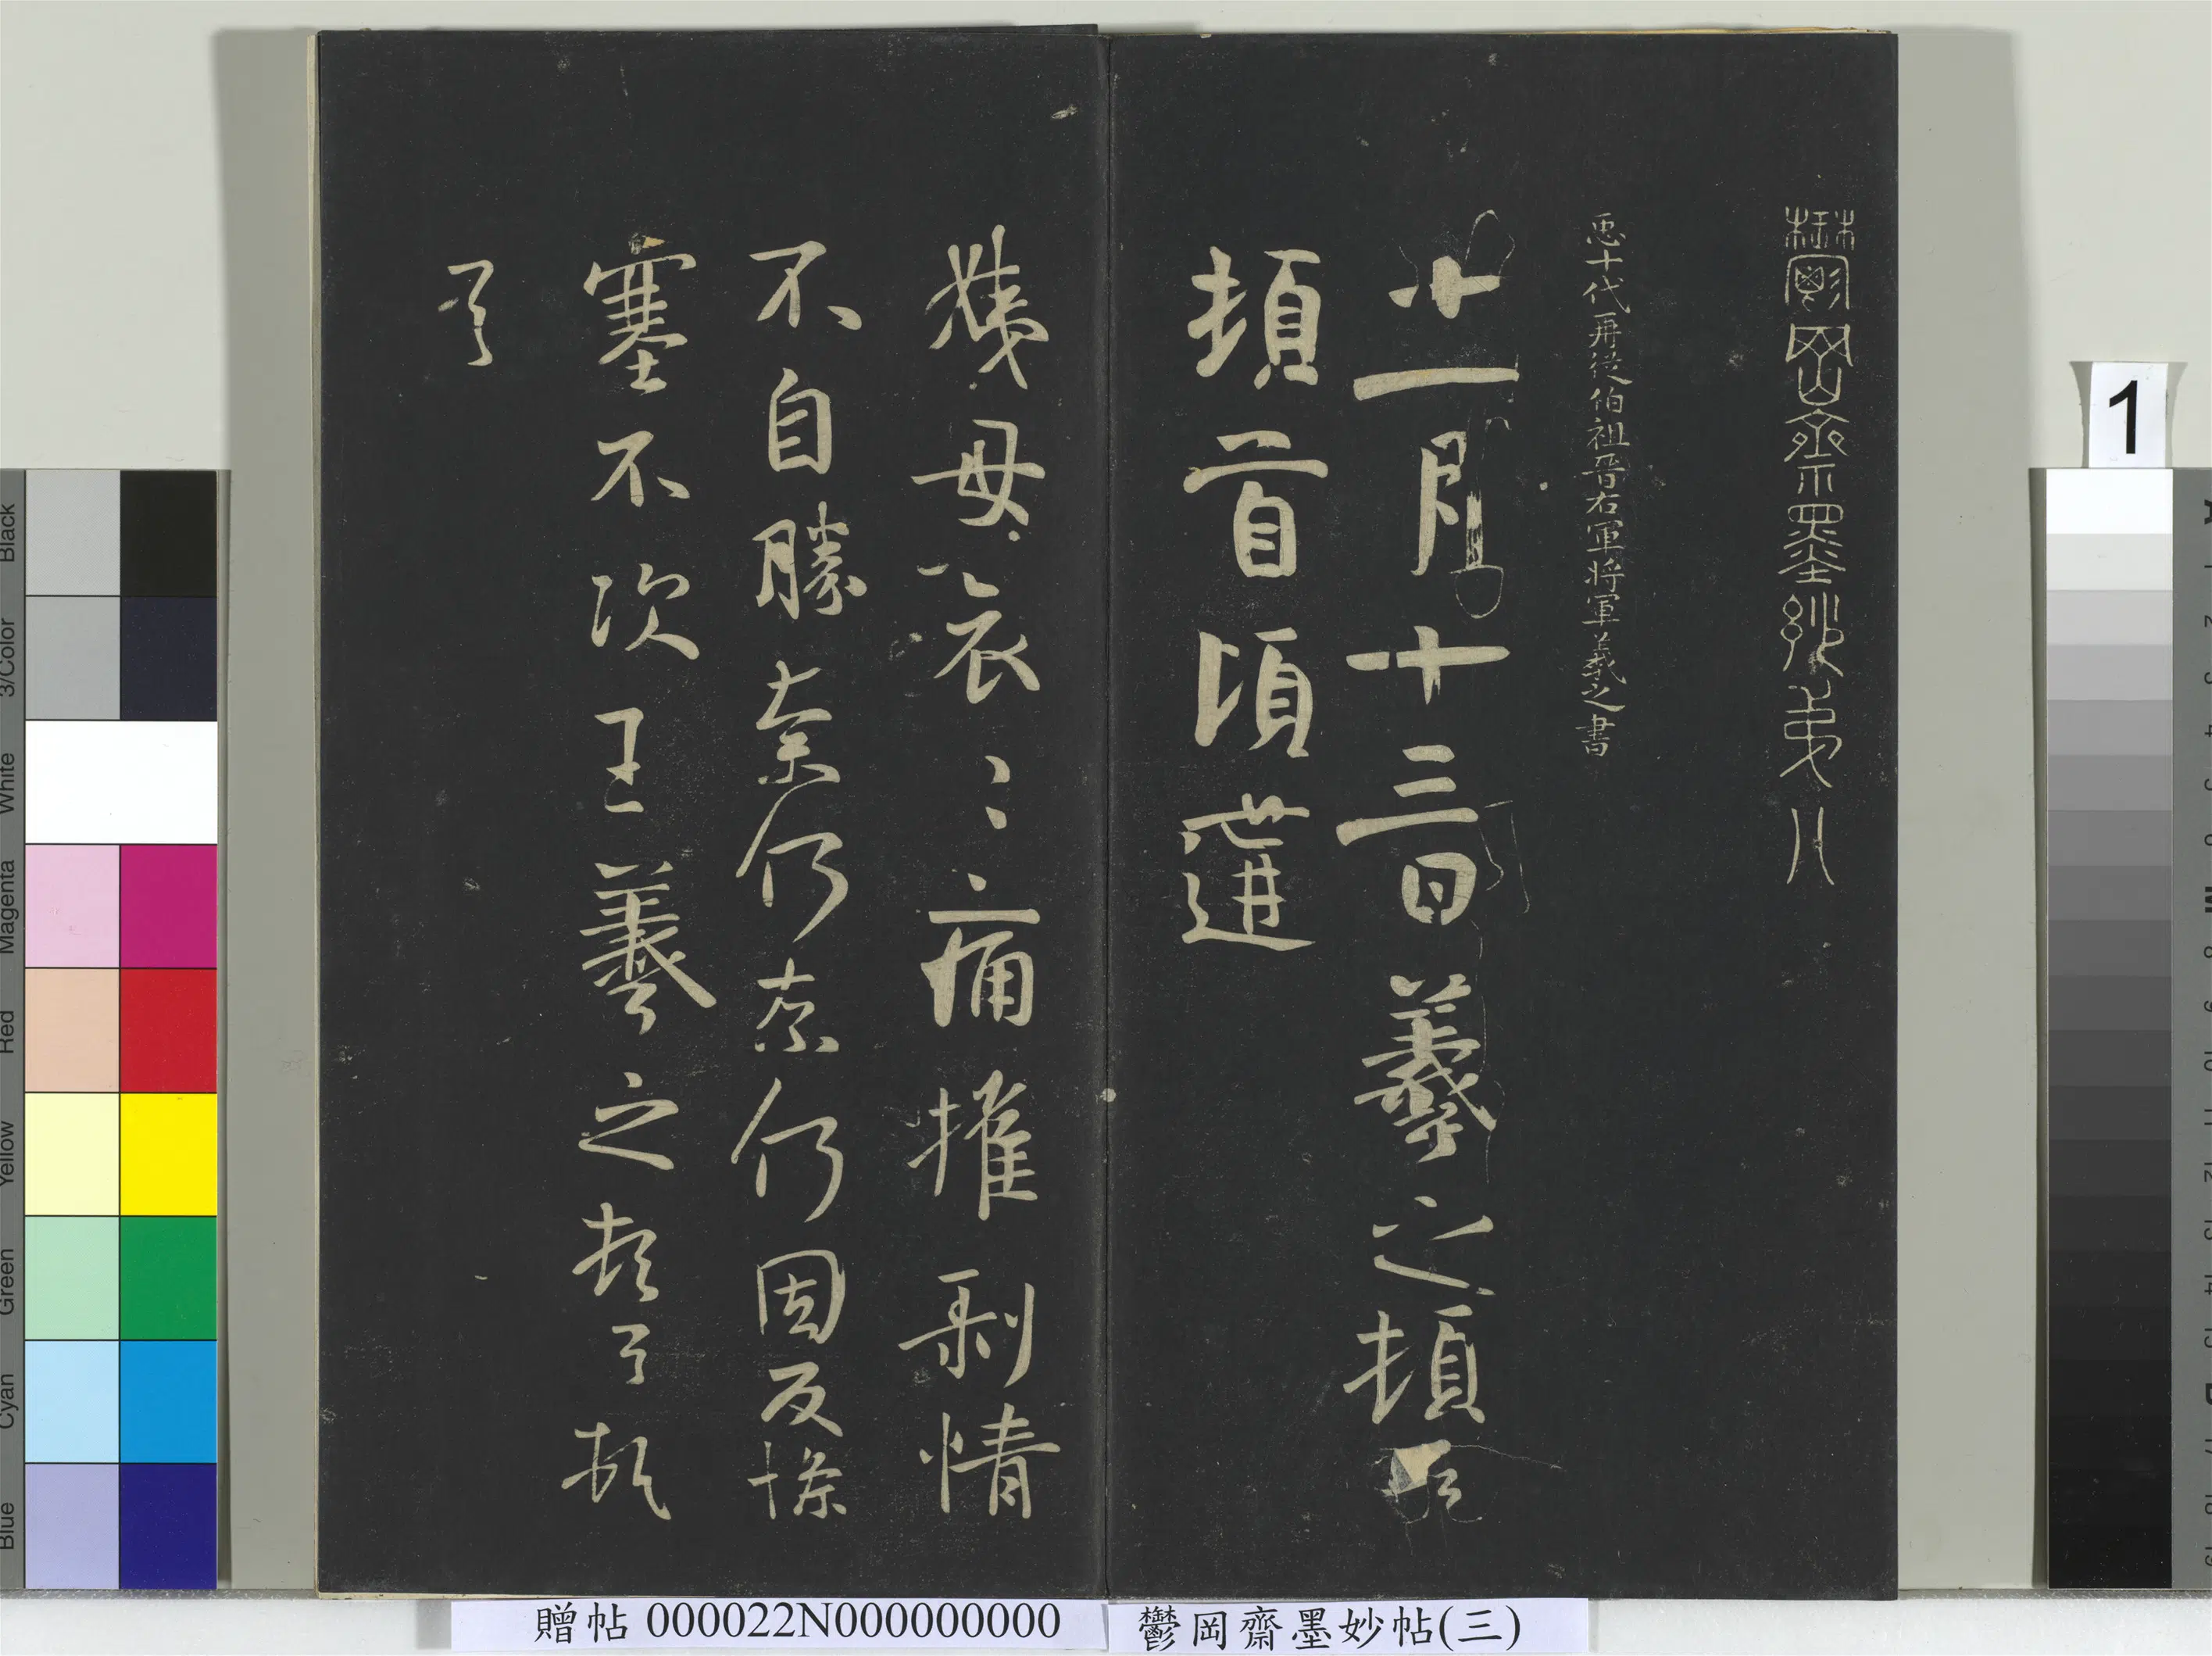 鬱岡齋墨妙第八
臣十代再從伯祖晉右軍將軍羲之書
十一月十三日羲之頓首
頓首頃遘
姨母哀哀痛摧剥情
不自勝柰何柰何因反慘
塞不次王羲之頓首頓
首
贈帖 000022N000000000
鬱岡齋墨妙帖(三)
1
Black
3/Color
White
Magenta
Red
Yellow
Green
Cyan
Blue